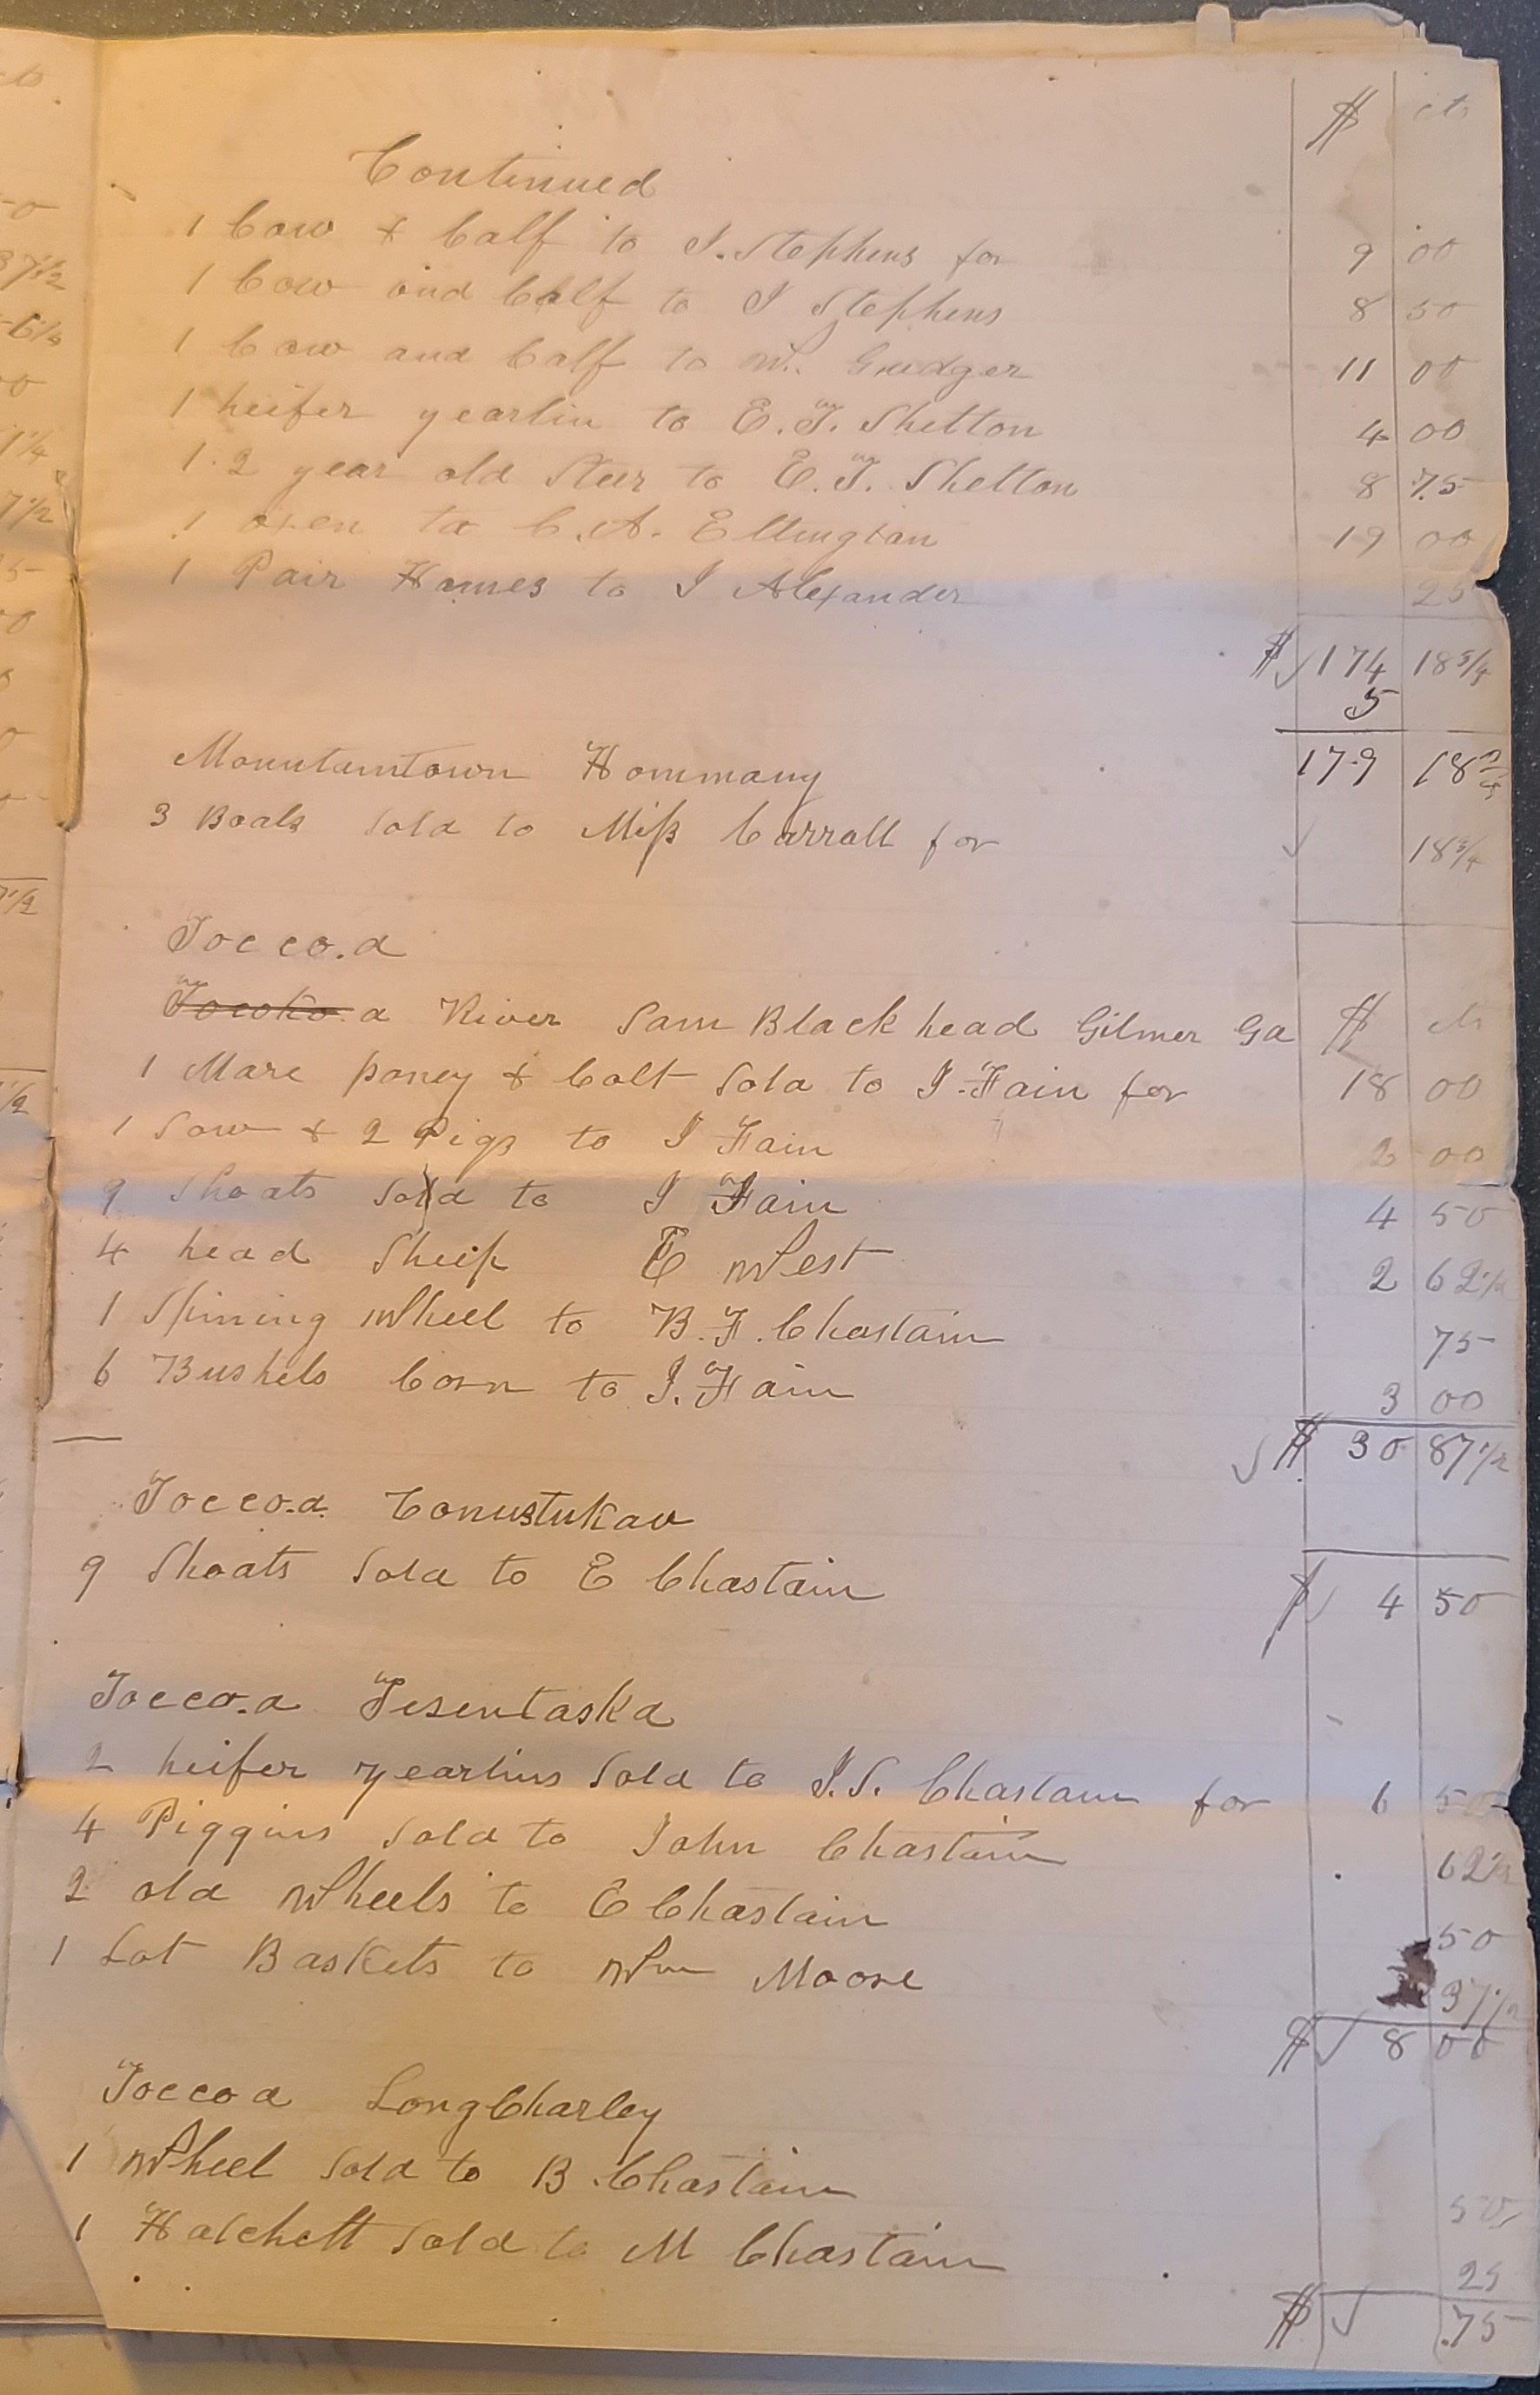 $ cts
Continued
1 Cow & Calf to J. Stephens for 9 00
1 Cow and Calf to J Stephens 8 50
1 Cow and Calf to W. Gudger 11 00
1 heifer yearlin to E. T. Shelton 4 00
1 2 year old Steer to E. T. Shelton 8 75
1 oxen to C. A. Ellington 19 00
1 Pair Hames to J Alexander 25
$ 174 18 3/4
5
179 18 3/4
Mountaintown Hommany
3 Boals Sold to Miss Carroll for 18 3/4
Tocco.a
Tocoko a River Sam Black head Gilmer Ga $ cts
1 Mare poney & Colt Sold to J. Fain for 18 00
1 Sow & 2 Pigs to J Fain 2 00
9 Shoats Sold to J Fain 4 50
4 head Sheep E West 2 62 1/2
1 Spining Wheel to B. F. Chastain 75
6 Bushels Corn to J. Fain 3 00
$ 30 87 1/2
Tocco.a Conustukau
9 Shoats Sold to E Chastain $ 4 50
Tocco.a Tesentaska
2 heifer yearlins Sold to J. S. Chastain for 6 50
4 Piggins Sold to John Chastain 62 1/2
2 old Wheels to E Chastain 50
1 Lot Baskets to Wm Moore 37 1/2
$ 8 00
Toccoa Long Charley
1 Wheel Sold to B. Chastain 50
1 Hatchett Sold to M Chastain 25
$ .75